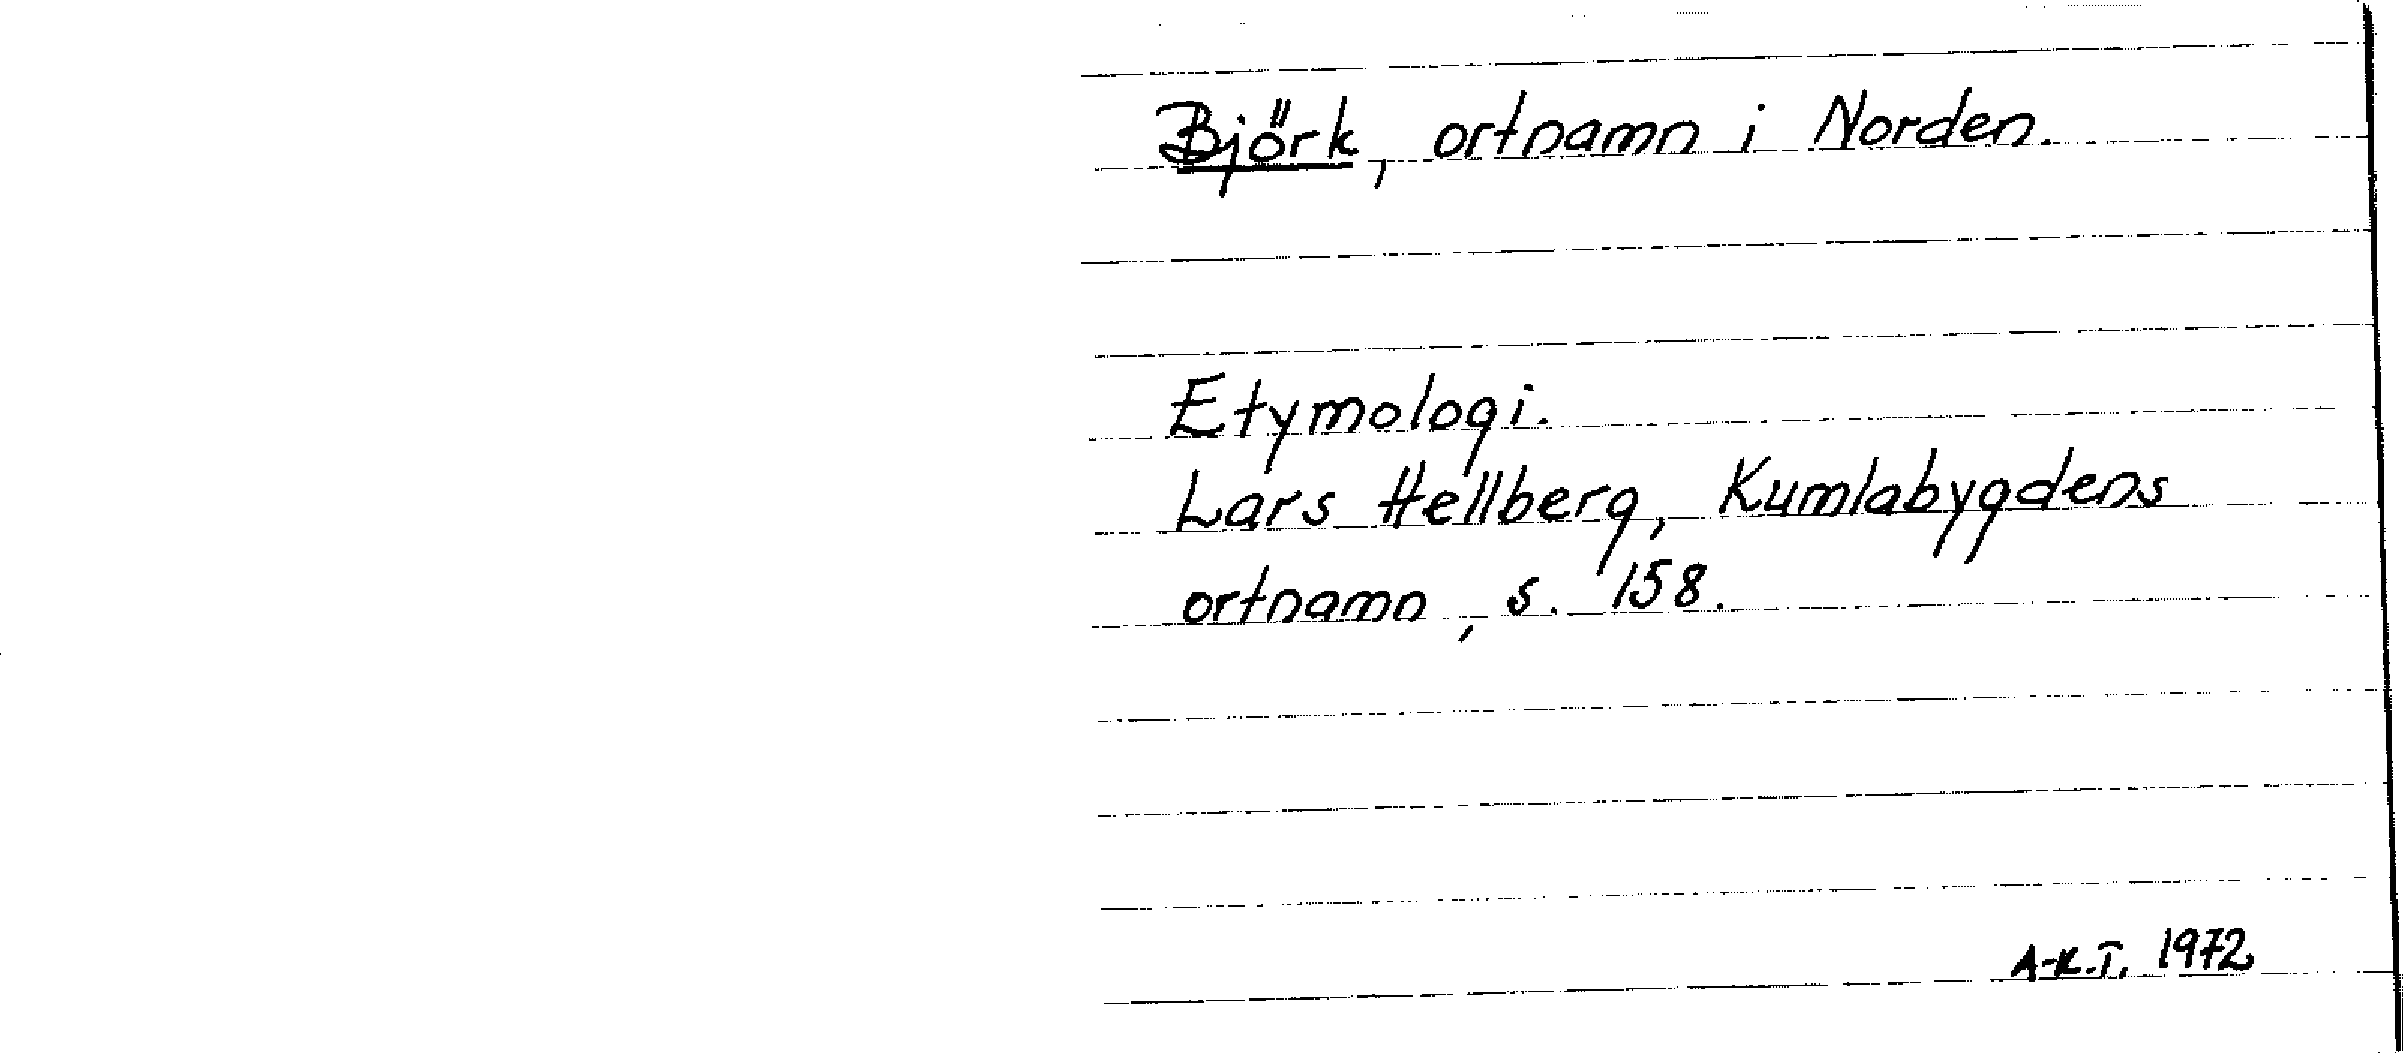 Björk, ortnamn i Norden.
Etymologi.
Lars Hellberg, Kumlabygdens
ortnamn, s. 158.
A-K.T. 1972